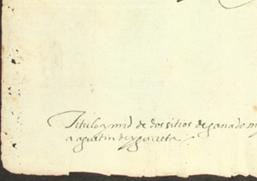 Titulo y md de dos sitios de ganado m
a agustin de